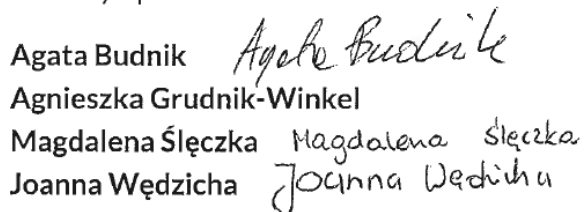 Agata Budnik Agata Budnik
Agnieszka Grudnik-Winkel
Magdalena Ślęczka Magdalena Ślęczka
Joanna Wędzicha Joanna Wędzicha